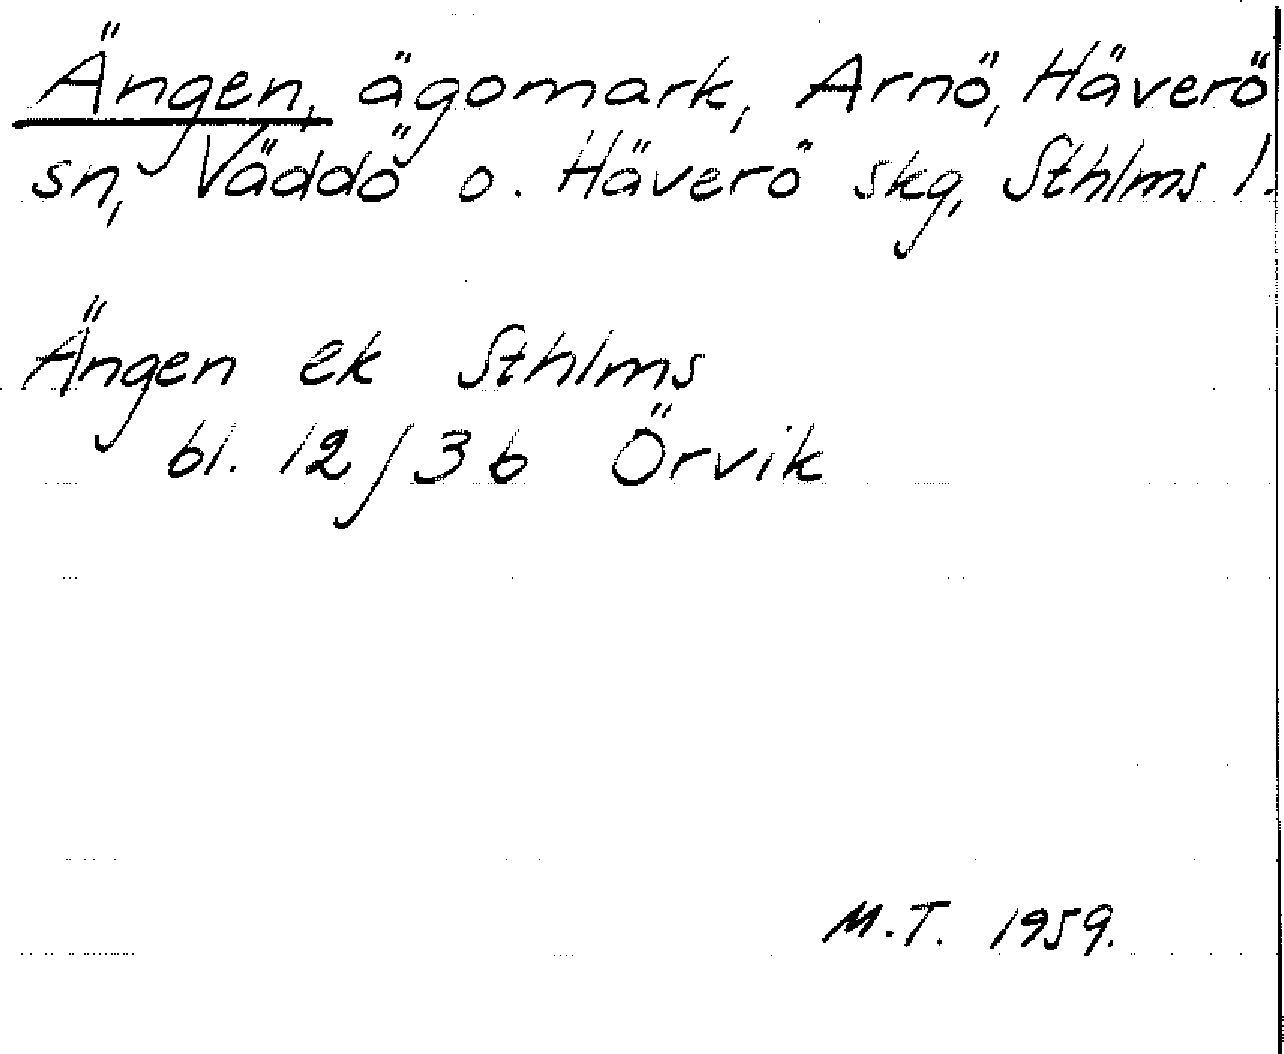 Ängen, ägomark, Arnö, Häverö
sn, Väddö o. Häverö skg, Sthlms l.
Ängen ek Sthlms
bl. 12/3b Örvik
M.T. 1959.